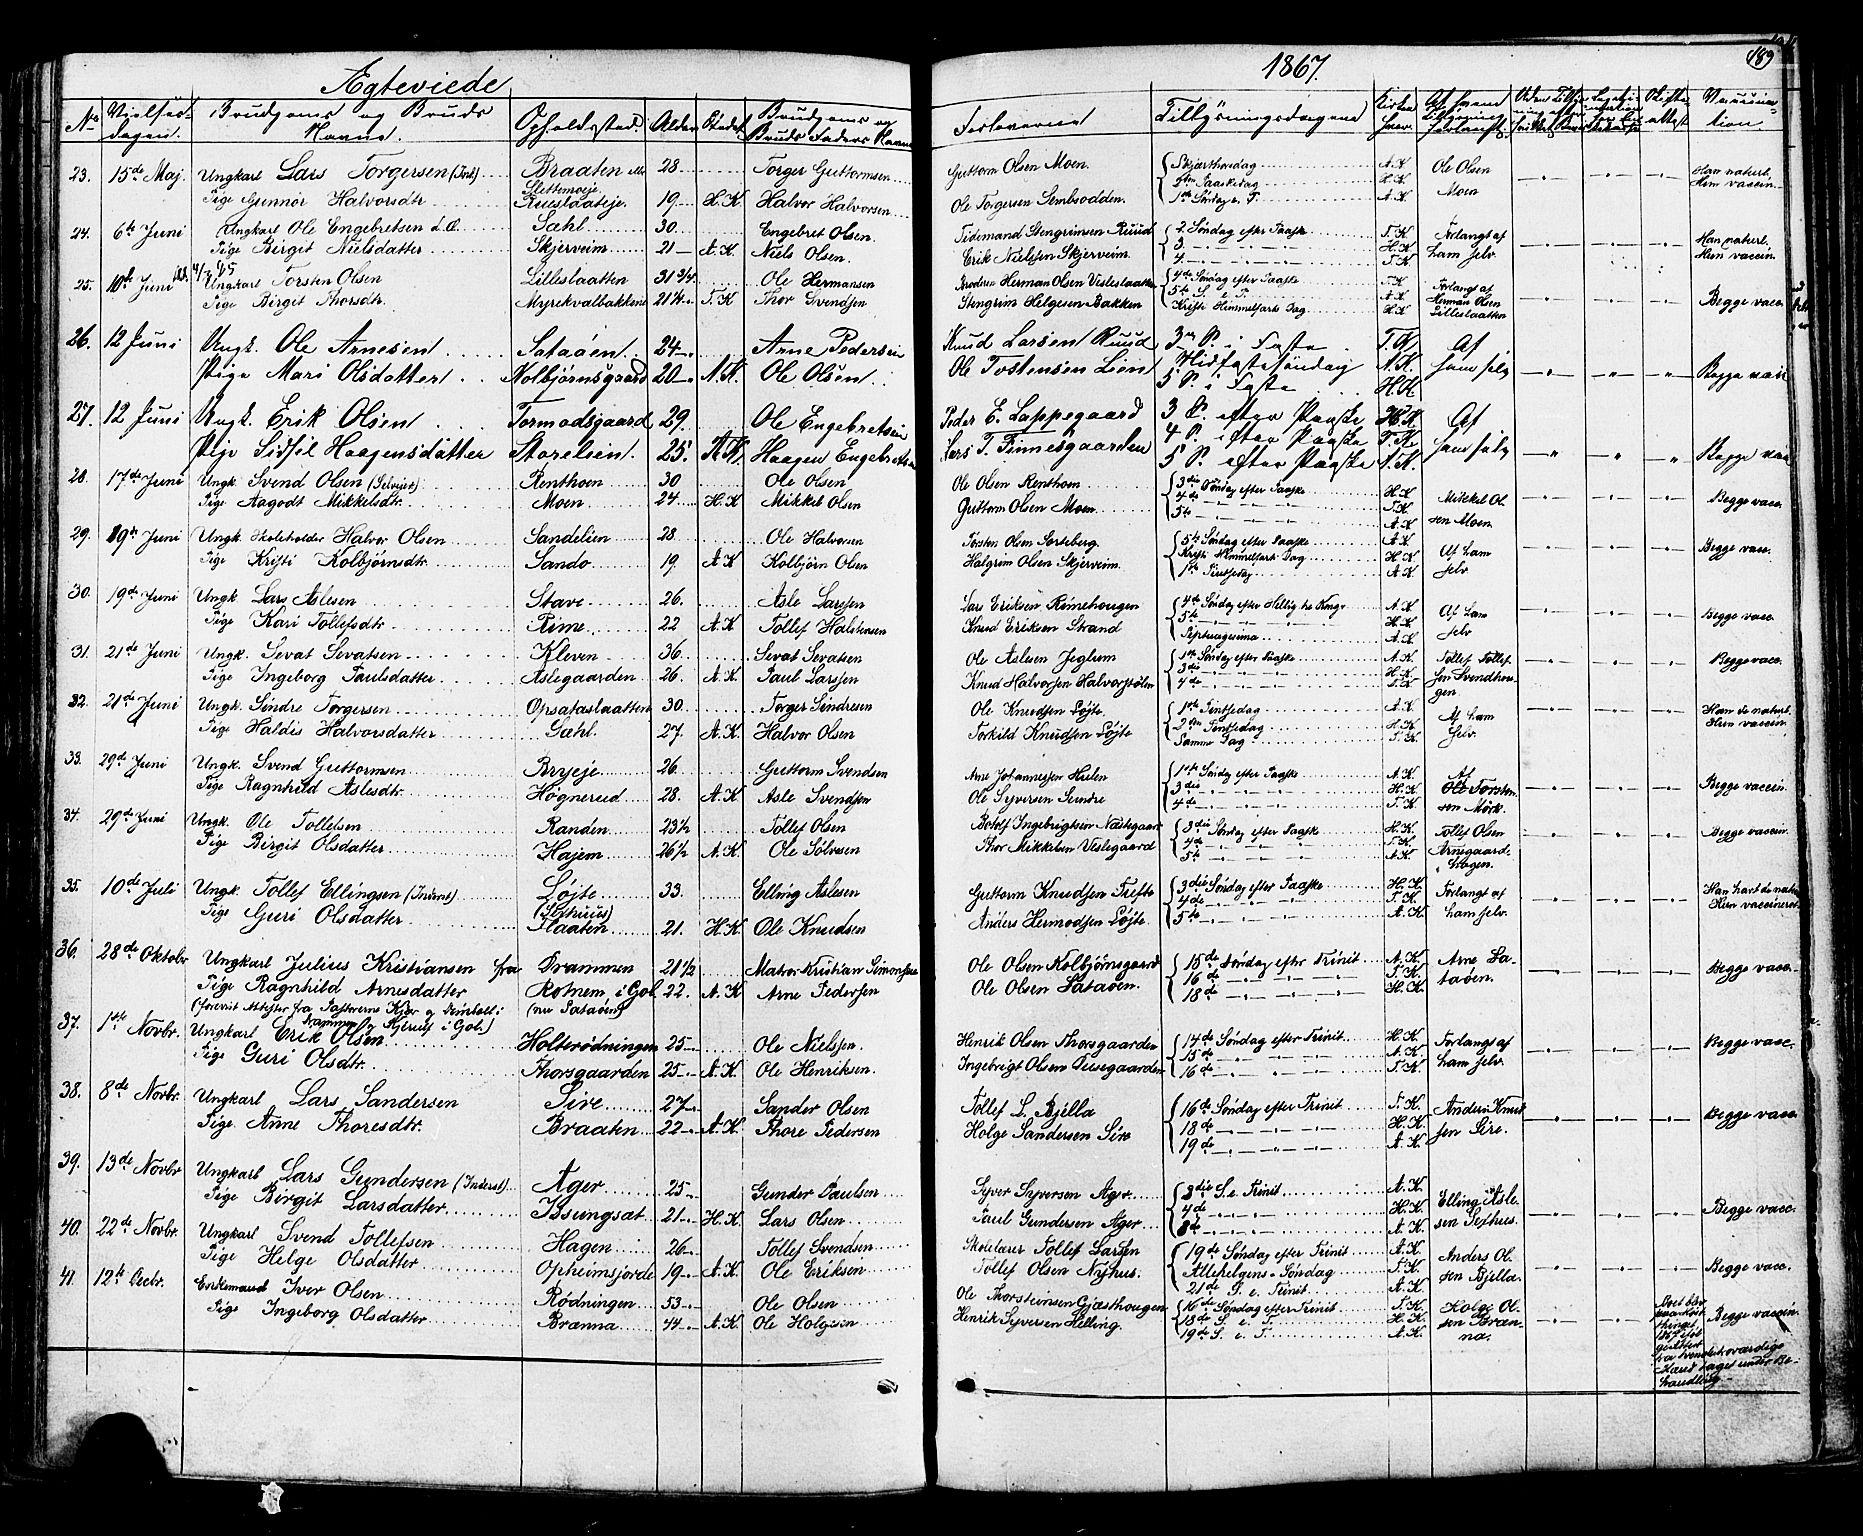 Ægteviede
1867.
189
No Vielses-dagen. Brudgoms og Bruds Navne. Opholdssted. Alder Stedet Brudgoms og Bruds Faders Navne Forloverne Tillysningsdagene
23. 15de Maj. Ungkarl Lars Torgersen (Ind.) Braaten 28 Torger Guttormsen Guttorm Olsen Moen Skjærthorsdag A.K Ole Olsen Han naturl.
Pige Gunnor Halvorsdtr. 19 H.K Halvor Halvorsen Ole Torgersen Sembsodden. 2den Paaskedag H.K Moen Hun vaccin.
1ste Søndag e. P. A.K
24. 6te Juni Ungkarl Ole Engebretsen Sæhl 30. Engebret Olsen. Tidemand Stengrimsen Ruud 2. Søndag efter Paaske T.K Forlangt af Han naturl.
Pige Birgit Nielsdatter Skjerveim. 21 A.K Niels Olsen. Erik Nielssen Skjerveim. 3. H.K ham selv Hun vaccin.
4. T.K
25. 10de Juni Ungkarl Torsten Olsen Lilleslaatten 31 3/4 Ole Hermansen Broderen Herman Olsen Vesleslaatten 4de Søndag efter Paaske T.K Forlangt af
Pige Birgit Thorsdtr. Myrekvalbakkene 21 1/4 T.K Thor Svendsen Stengrim Helgesen Bakken 5te S. e. P. A.K Herman Olsen Begge vacc.
Kristi Himmelfarts Dag H.K Lilleslaatten
26. 12 Juni Ungk. Ole Arnesen Sataöen. 24 Arne Pedersen Knud Larsen Ruud 3 S. i Faste T.K Af
Pige Mari Olsdatter Kolbjørnsgaard 20 A.K. Ole Olsen Ole Tostensen Lien Midfastesöndag A.K. ham selv Begge vac
5 S. i Faste H.K
27. 12 Juni Ungk. Erik Olsen Tormodsgaard 29. Ole Engebretsen Peder E. Lappegaard 3 S. efter Paaske H.K Af
Pige Sidsil Haagensdatter Storelien. 25. A.K. Haagen Engebretsen Lars T. Finnesgaarden 4 S. efter Paaske T.K. ham selv Begge vac
5 S. efter Paaske A.K.
28. 17de Juni Ungk. Svend Olsen (Selveier) Renthom 30 Ole Olsen Ole Olsen Renthom 3die Søndag efter Paaske H.K Mikkel Ol-
Pige Aagodt Mikkelsdtr. Moen 24 H.K Mikkel Olsen Guttorm Olsen Moen 4de T.K sen Moen. Begge vacc.
5te A.K
29. 19de Juni Ungk. Skoleholder Halvor Olsen Sandelien 28 Ole Halvorsen Torsten Olsen Sorteberg. 5te Søndag efter Paaske A.K Af ham
Pige Kristi Kolbjørnsdtr. Sando 19 A.K Kolbjörn Olsen Halgrim Olsen Skjerveim. Kristi Himmelfarts Dag H.K selv Begge vacc.
1ste Pintsedag A.K
30. 19de Juni Ungk. Lars Aslesen Stave 26. Asle Larssen Lars Eriksen Rimehougen 4de Søndag efter Hellig tre Konge A.K Af ham
Pige Kari Tollefsdtr. Rime 22 A.K Tollef Halstensen Knud Eriksen Strand 5te H.K selv Begge vacc.
Septuagesima A.K
31. 21de Juni Ungk. Sevat Sevatsen Kleven 36. Sevat Sevatsen Ole Aslesen Jeglum 1ste Søndag efter Paaske A.K. Tollef Tollef-
Pige Ingeborg Paulsdatter Aslegaarden 26. A.K Paul Larssen Knud Halvorsen Halvorstölen 3die H.K sen Svendhou- Begge vacc.
4de T.K gen
32. 21de Juni Ungk. Sindre Torgersen Opsataslaatten 30. Torger Sindresen Ole Knudsen Løjte. 1ste Pintsedag A.K Af ham Han de naturl.
Pige Haldis Halvorsdatter Sæhl. 27. A.K Halvor Olsen Torkild Knudsen Løjte 2den Pintsedag H.K selv Hun vaccin.
Samme Dag T.K
33. 29de Juni Ungk. Svend Guttormsen Bryeje 26. Guttorm Svendsen Arne Johannessen Hulen 1ste Søndag efter Paaske A.K Af
Pige Ragnhild Aslesdtr. Högnerud 28. A.K Asle Svendsen Ole Syversen Sundre 3die H.K Ole Torsten- Begge vaccin.
4de T.K sen Mörk.
34. 29de Juni Ungk. Ole Tollefsen Randen 23½ Tollef Olsen Botolf Ingebrigtsen Næstegaard 3die Søndag efter Paaske H.K. Tollef Olsen
Pige Birgit Olsdatter Hajem 26½ A.K Ole Sølvesen Thor Mikkelsen Veslegaard 4de T.K Arnegaard- Begge vaccin.
5te A.K hagen.
35. 10de Juli Ungk. Tollef Ellingsen (Inderst) Løjte 33. Elling Aslesen Guttorm Knudsen Tufte 3die Søndag efter Paaske H.K. Forlangt af Han havt de naturl
Pige Guri Olsdatter Slaaten 21. H.K Ole Knudsen Anders Hermodsen Løjte 4de T.K ham selv. Hun vaccineret.
5te A.K
36. 28de Oktobr Ungkarl Julius Kristiansen fra Drammen 21½ Matros Kristian Simonsen Ole Olsen Kolbjörnsgaard 15de Søndag efter Trinit A.K Arne Sa-
Pige Ragnhild Arnesdatter Rotnem i Gol. 22. A.K Arne Pedersen Ole Olsen Sataöen. 16de T.K taöen. Begge vaccin.
(forevist Attester fra Præsterne Kjær og Reimholt i (nu Sataöen) 18de H.K
Drammen og Hjerulf i Gol.)
37. 1ste Novbr. Ungkarl Erik Olsen Holterödningen 25 Ole Nielssen. Henrik Olsen Thorsgaarden 14de Søndag efter Trinit H.K. Forlangt af
Pige Guri Olsdtr. Thorsgaarden 25 A.K Ole Henriksen. Ingebrigt Olsen Tusegaarden 15de A.K ham selv. Begge vacc.
16de T.K
38. 8de Novbr. Ungkarl Lars Sandersen Sire 27 Sander Olsen Tollef L. Bjella 16de Søndag efter Trinit T.K. Anders Knut-
Pige Anne Thoresdtr. Braaten 22 A.K Thore Pedersen Holge Sandersen Sire 18de H.K sen Sire. Begge vacc.
19de A.K
39. 13de Novbr Ungkarl Lars Gundersen (Inderst) Ager 25 Gunder Paulsen Syver Syversen Ager 3die S. e. Trinit A.K Elling Asle-
Pige Birgit Larsdatter Issungsæt 21 H.K Lars Olsen Paul Gundersen Ager 4de H.K sen Sethus. Begge vacc.
8de A.K
40. 22de Novbr. Ungkarl Svend Tollefsen Hagen 26 Tollef Svendsen Skolelærer Tollef Larsen 19de Søndag efter Trinit A.K Anders Ol-
Pige Helge Olsdatter Opheimsjorde 19 A.K Ole Eriksen Tollef Olsen Nyhus. Allehelgens-Søndag T.K sen Bjella. Begge vacc.
21de S. e. Trinit. A.K
41. 12te Decbr. Enkemand Iver Olsen Rödningen 53 Ole Olsen Ole Thorsteinsen Gjæsthougen 16de Søndag efter Trinit T.K Holge Ol-
Pige Ingeborg Olsdatter Brænna 44 A.K Ole Holgesen Henrik Syversen Helling. 18de S. e. T. H.K sen Bræn- Begge vaccin.
19de S. e. T. A.K na.
1867